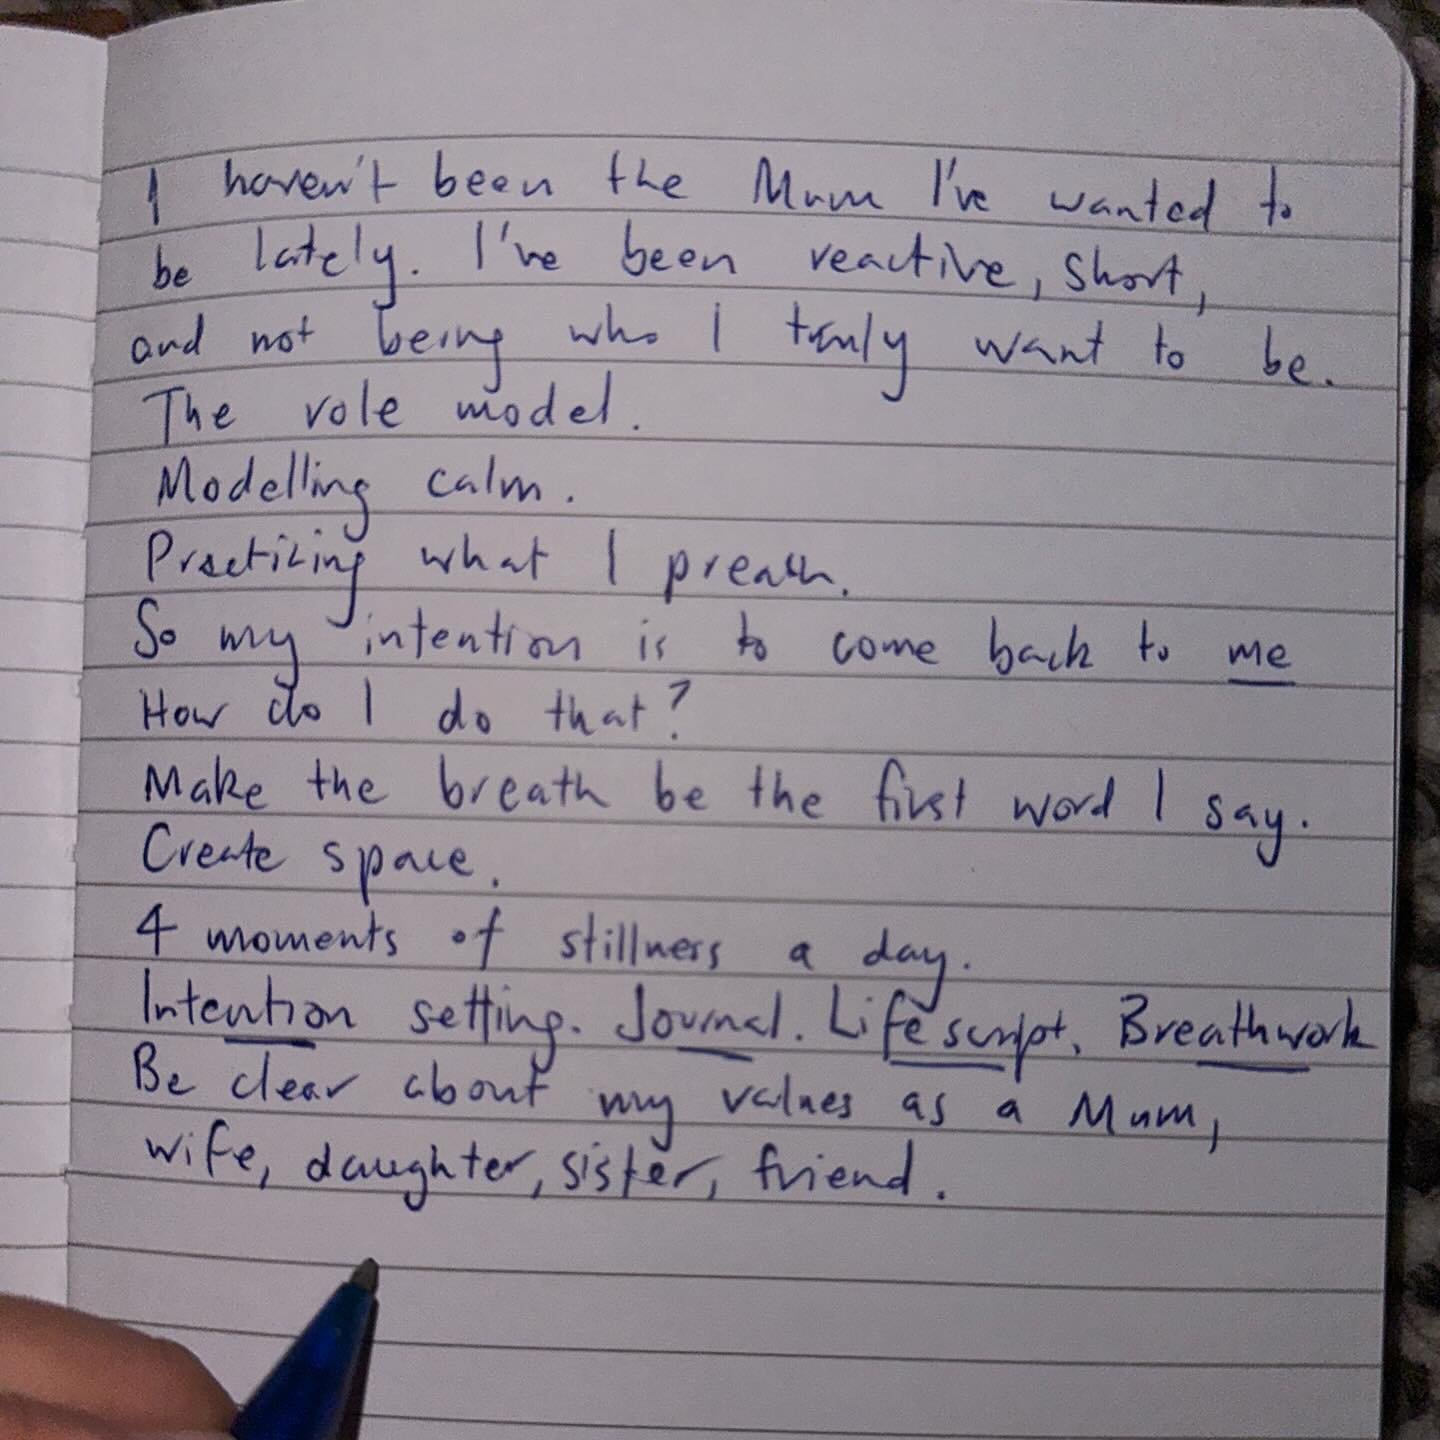 I haven't been the Mum I've wanted to
be lately. I've been reactive, short,
and not being who I truly want to be.
The role model.
Modelling calm.
Practicing what I preach.
So my intention is to come back to me
How do I do that?
Make the breath be the first word I say.
Create space.
4 moments of stillness a day.
Intention setting. Journal. Life script. Breathwork
Be clear about my values as a Mum,
wife, daughter, sister, friend.